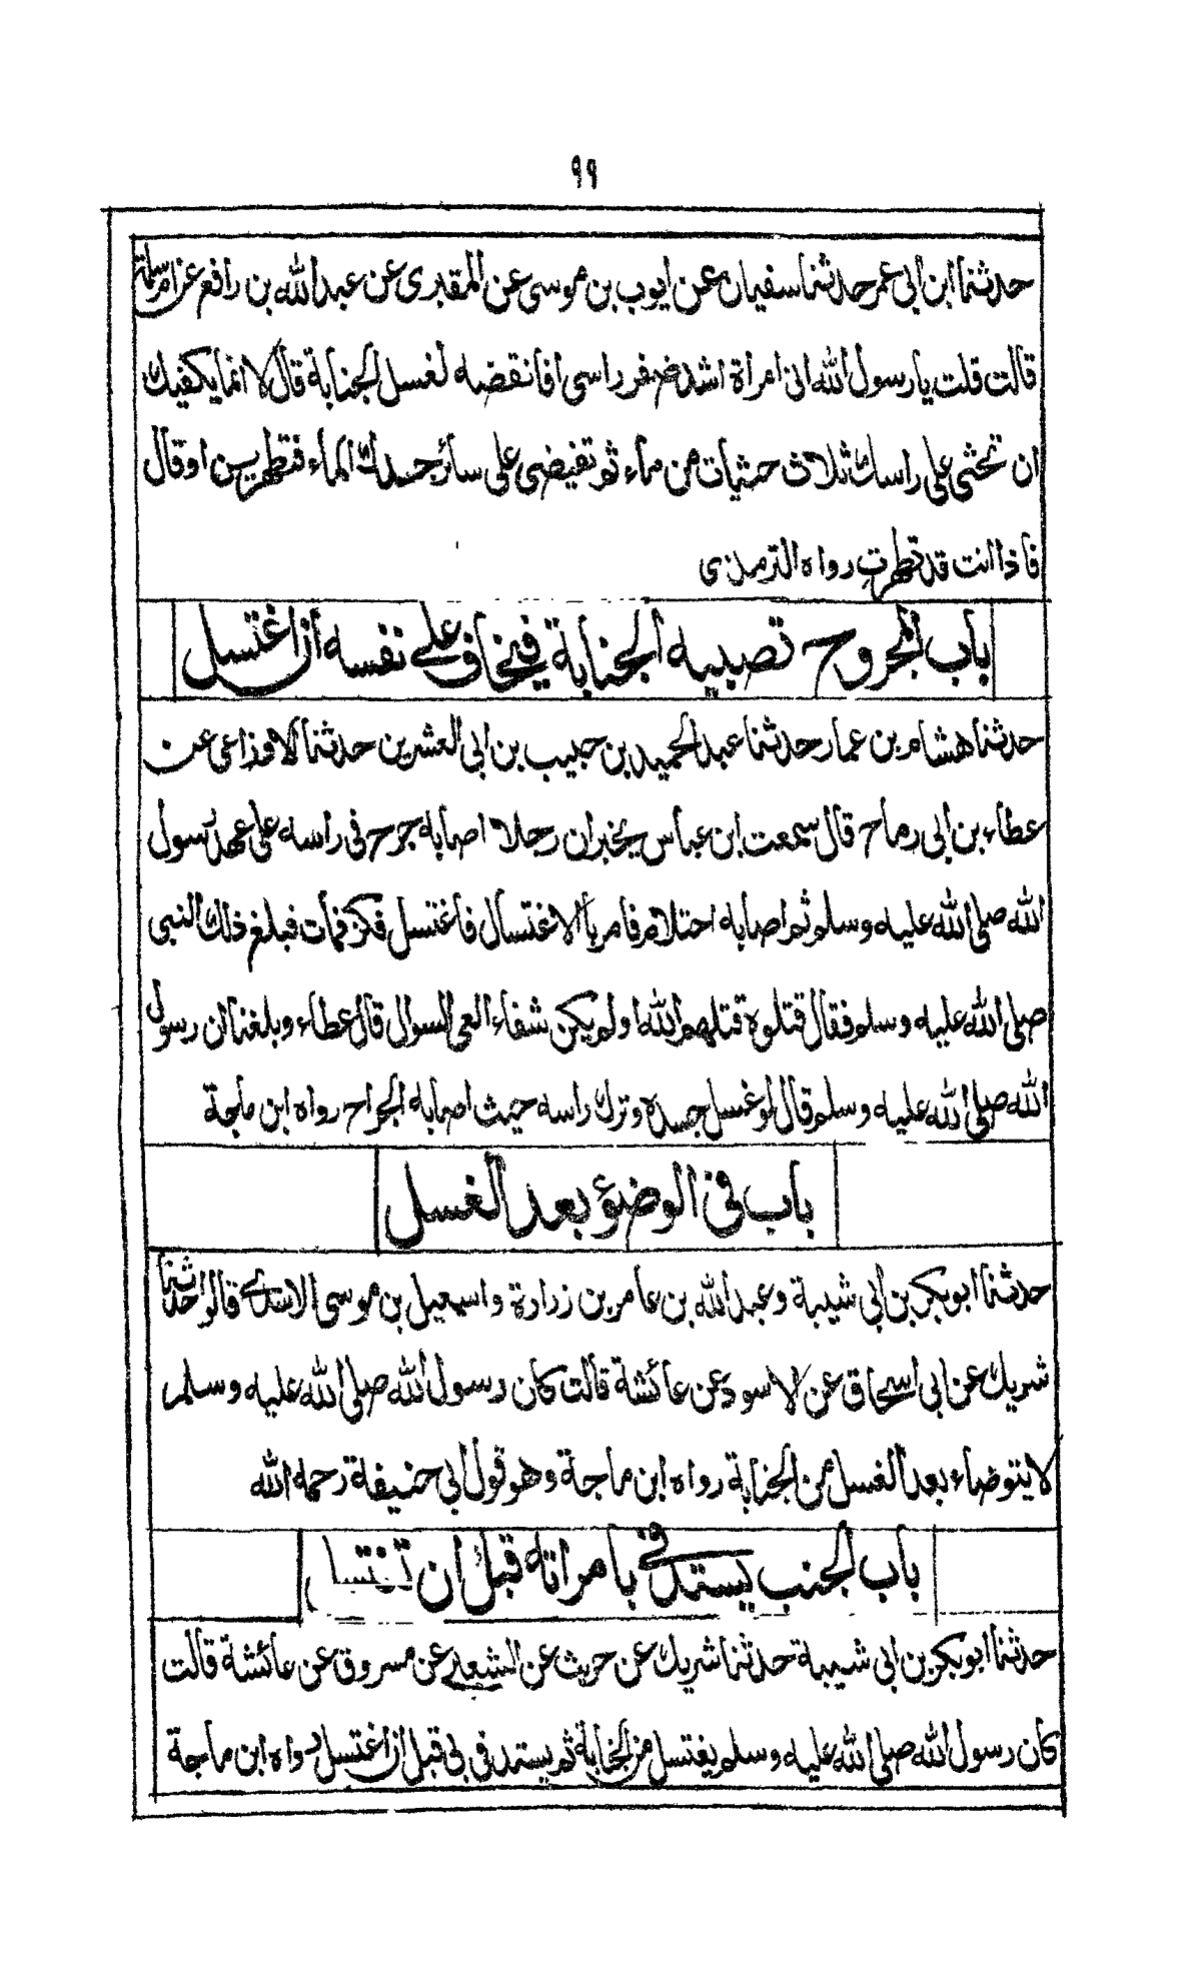 ٩٩
حدثنا ابن ابى عمر حدثنا سفيان عن ايوب بن موسى عن المقبرى عن عبد الله بن رافع عن ام سلمة
قالت قلت يا رسول الله انى امراة اشد ضفر راسى افانقضه لغسل الجنابة قال لا انما يكفيك
ان تحثى على راسك ثلاث حثيات من ماء ثم تفيضى على سائر جسدك الماء فتطهرين او قال
فاذا انت قد تطهرت رواه الترمذى
باب المجروح تصيبه الجنابة فيخاف على نفسه ان اغتسل
حدثنا هشام بن عمار حدثنا عبد الحميد بن حبيب بن ابى العشرين حدثنا الاوزاعى عن
عطاء بن ابى رباح قال سمعت ابن عباس يخبر ان رجلا اصابه جرح فى راسه على عهد رسول
الله صلى الله عليه وسلم ثم اصابه احتلام فامر بالاغتسال فاغتسل فكز فمات فبلغ ذلك النبى
صلى الله عليه وسلم فقال قتلوه قتلهم الله اولم يكن شفاء العى السوال قال عطاء وبلغنا ان رسول
الله صلى الله عليه وسلم قال لو غسل جسده وترك راسه حيث اصابه الجراح رواه ابن ماجة
باب فى الوضوء بعد الغسل
حدثنا ابوبكر بن ابى شيبة وعبد الله بن عامر بن زرارة واسمعيل بن موسى الاسدى قالوا حدثنا
شريك عن ابى اسحاق عن الاسود عن عائشة قالت كان رسول الله صلى الله عليه وسلم
لا يتوضاء بعد الغسل من الجنابة رواه ابن ماجة وهو قول ابى حنيفة رحمه الله
باب الجنب يستدفى بامراته قبل ان تغتسل
حدثنا ابوبكر بن ابى شيبة حدثنا شريك عن حريث عن الشعبى عن مسروق عن عائشة قالت
كان رسول الله صلى الله عليه وسلم يغتسل من الجنابة ثم يستدفى بى قبل ان اغتسل رواه ابن ماجة